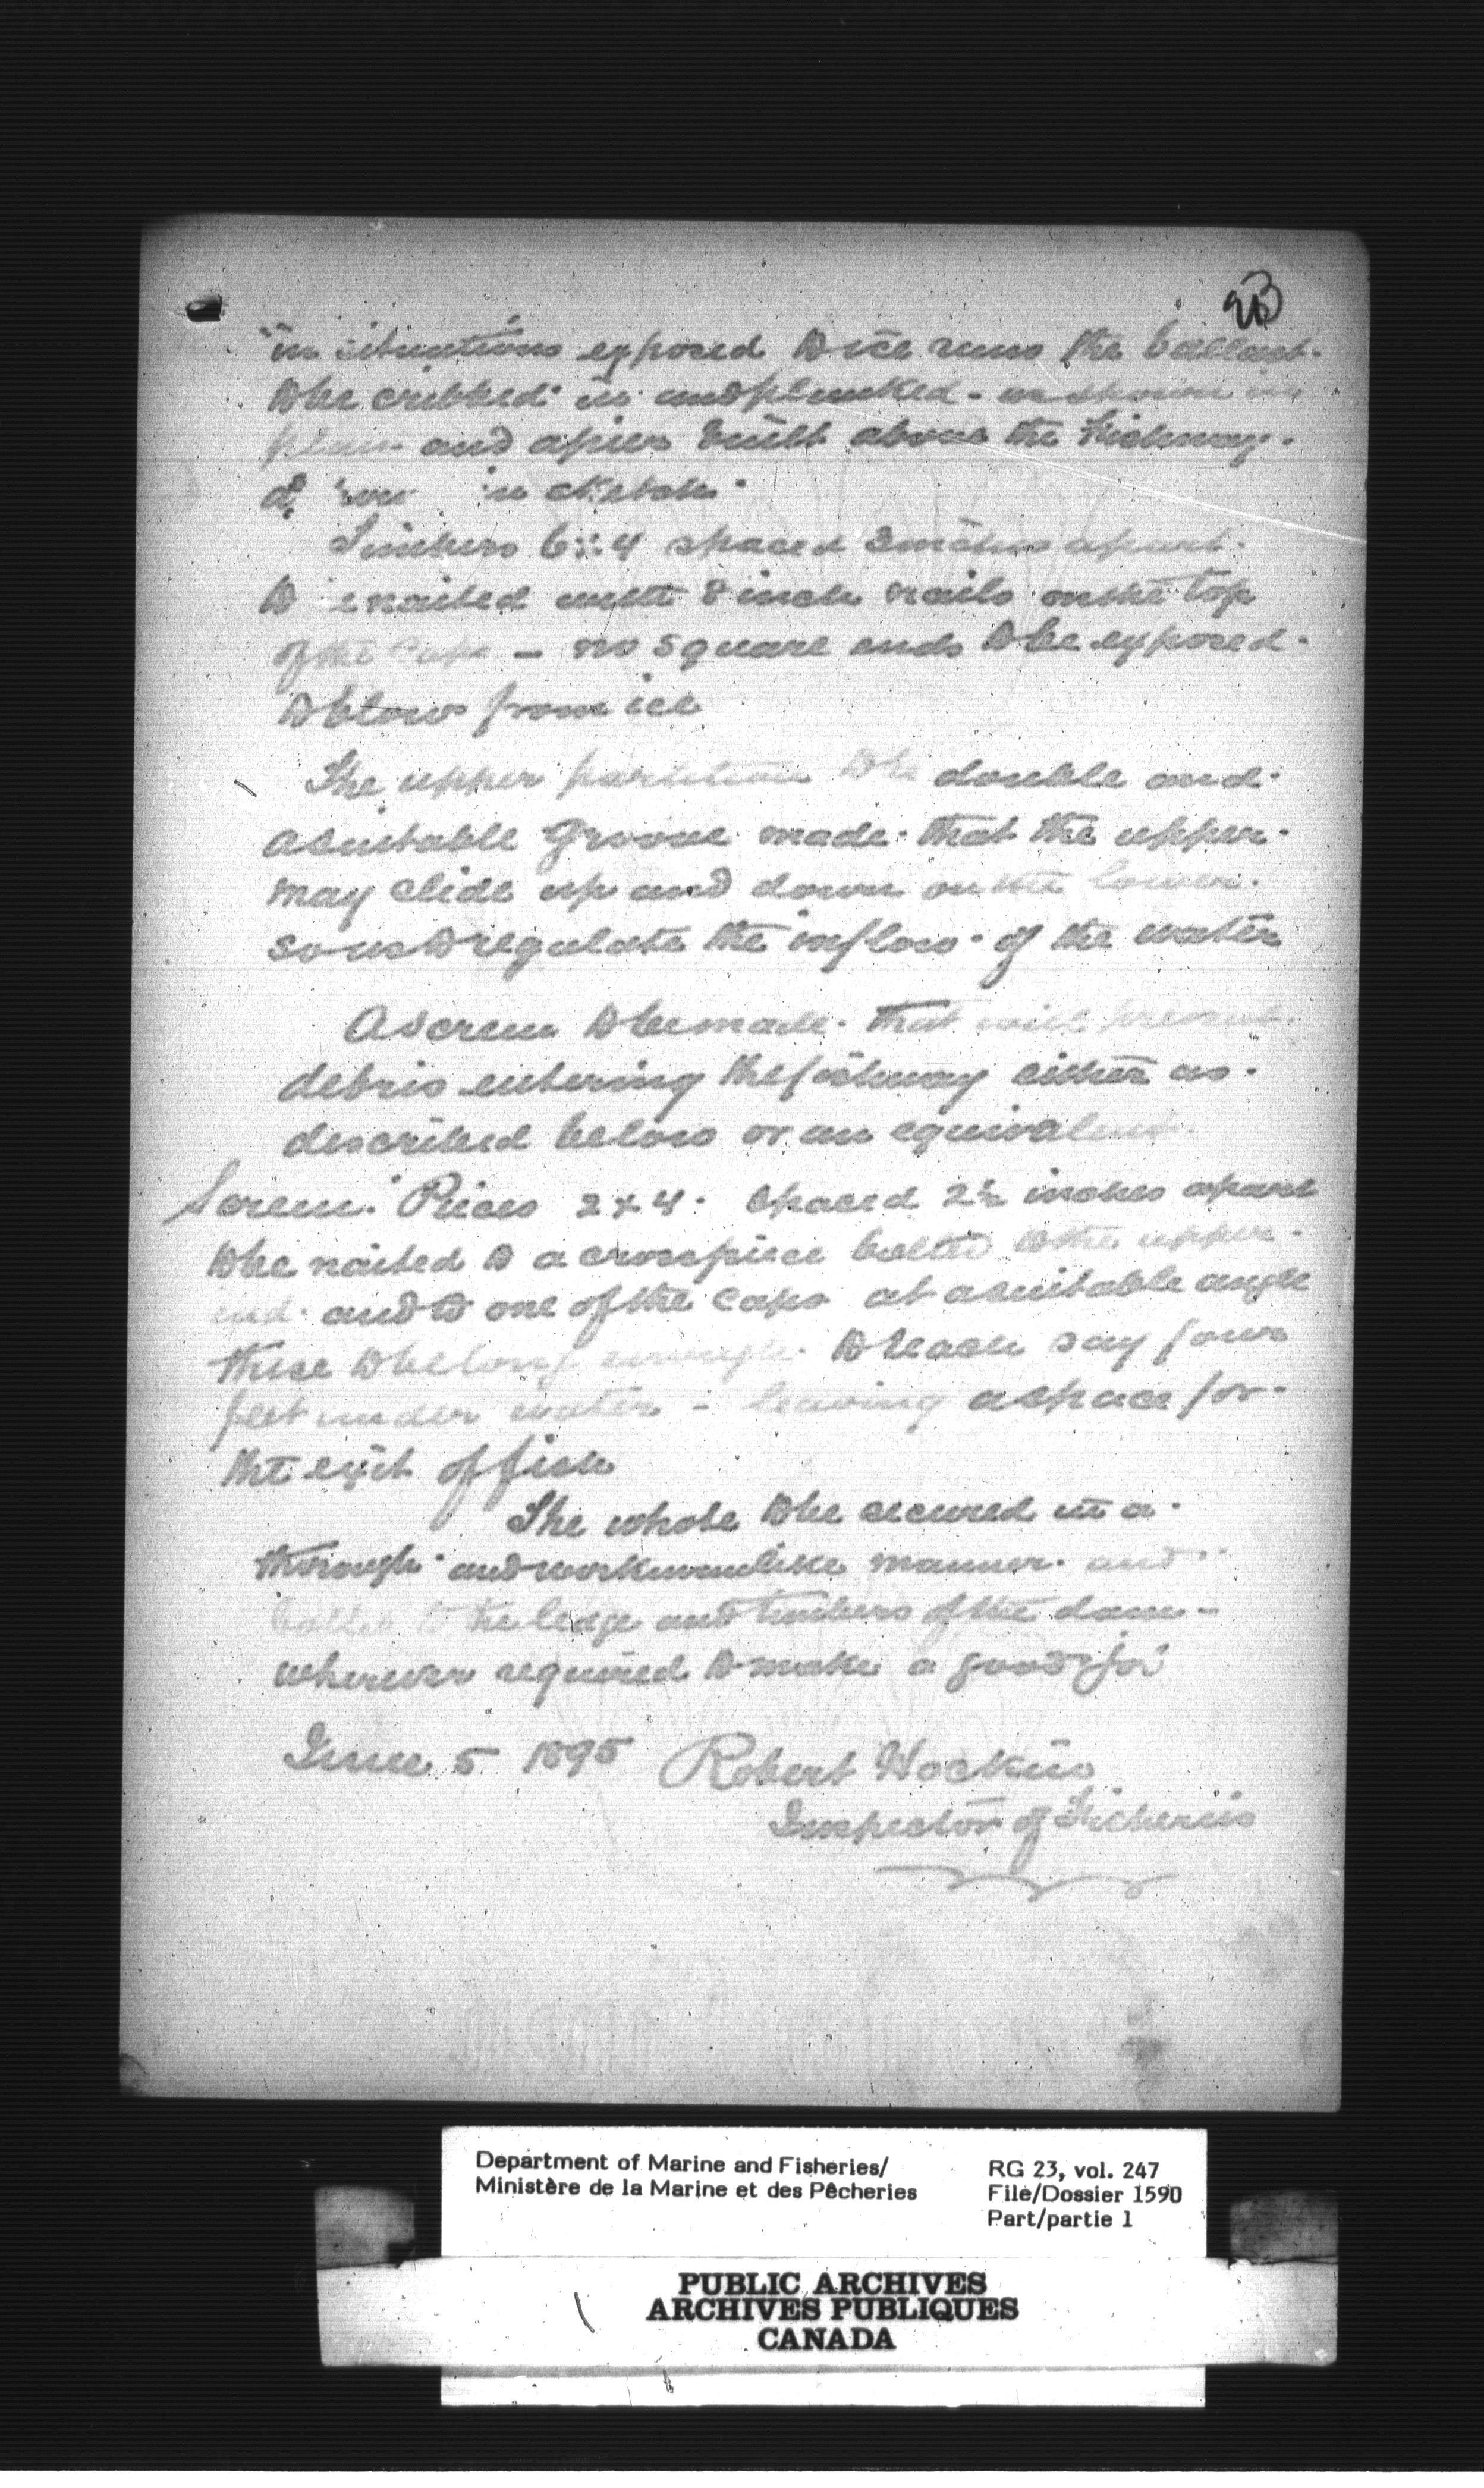 in situations exposed to ice runs the ballast
to be cribbed in and planked - as shown in
plan and a pier built above the fishway
in sketch
Timbers 6 x 4 spaced 3 inches apart
to be nailed with 8 inch nails on the top
of the caps - no square ends to be exposed
to blows from ice
The upper partition to be double and
a suitable groove made that the upper
may slide up and down on the lower
so as to regulate the inflow of the water
A screen to be made that will prevent
debris entering the fishway either as
described below or an equivalent
Screen. Pieces 2 x 4. spaced 2½ inches apart
to be nailed to a crosspiece bolted to the upper
end and to one of the caps at a suitable angle
these to be long enough to reach say four
feet under water - leaving a space for
the exit of fish
The whole to be secured in a
thorough and workmanlike manner and
bolted to the ledge and timbers of the dam -
wherever required to make a good job
June 5 1895 Robert Hockin
Inspector of Fisheries
Department of Marine and Fisheries/
Ministère de la Marine et des Pêcheries
RG 23, vol. 247
File/Dossier 1590
Part/partie 1
PUBLIC ARCHIVES
ARCHIVES PUBLIQUES
CANADA